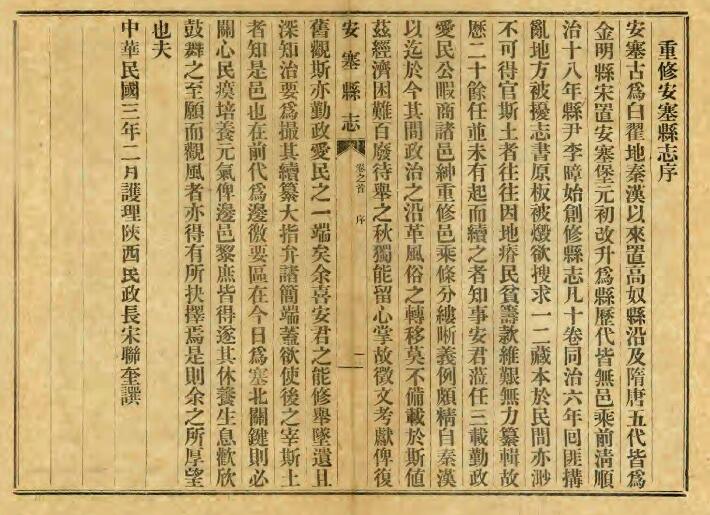 重修安塞縣志序
安塞古爲白翟地秦漢以來置高奴縣沿及隋唐五代皆爲
金明縣宋置安塞堡元初改升爲縣歷代皆無邑乘前淸順
治十八年縣尹李暲始創修縣志凡十卷同治六年回匪搆
亂地方被擾志書原板被燬欲搜求一二藏本於民間亦渺
不可得官斯土者往往因地瘠民貧籌款維艱無力纂輯故
歷二十餘任並未有起而續之者知事安君蒞任三載勤政
愛民公暇商諸邑紳重修邑乘條分縷晰義例頗精自秦漢
以迄於今其間政治之沿革風俗之轉移莫不備載於斯値
茲經濟困難百廢待舉之秋獨能留心掌故徵文考獻俾復
安塞縣志
卷之首
序
一
舊觀斯亦勤政愛民之一端矣余喜安君之能修舉墜遺且
深知治要爲撮其續纂大指弁諸簡端蓋欲使後之宰斯土
者知是邑也在前代爲邊徼要區在今日爲塞北關鍵則必
關心民瘼培養元氣俾邊邑黎庶皆得遂其休養生息歡欣
鼓舞之至願而觀風者亦得有所抉擇焉是則余之所厚望
也夫
中華民國三年二月護理陝西民政長宋聯奎譔